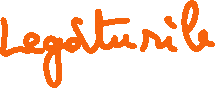 Legăturile